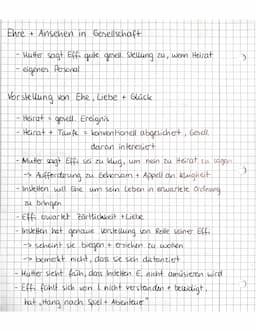 Ehre + Ansehen in Gesellschaft
- Mutter sagt Effi gute gesell. Stellung zu, wenn Heirat
- eigenes Personal
Vorstellung von Ehe, Liebe + Glück
- Heirat = gesell. Ereignis
- Heirat + Taufe = konventionell abgesichert, Gesell. daran interessiert
- Mutter sagt Effi sei zu klug, um nein zu Heirat zu sagen
→ Aufforderung zu Gehorsam + Appell an Klugheit
- Instetten will Ehe um sein Leben in erwartete Ordnung
zu bringen
- Effi erwartet Zärtlichkeit + Liebe
- Instetten hat genaue Vorstellung von Rolle seiner Effi
→ scheint sie biegen + erziehen zu wollen
→ bemerkt nicht, dass sie sich distanziert
- Mutter sieht früh, dass Instetten E. nicht amüsieren wird
- Effi fühlt sich von I. nicht verstanden + beleidigt,
hat „Hang nach Spiel + Abenteuer"